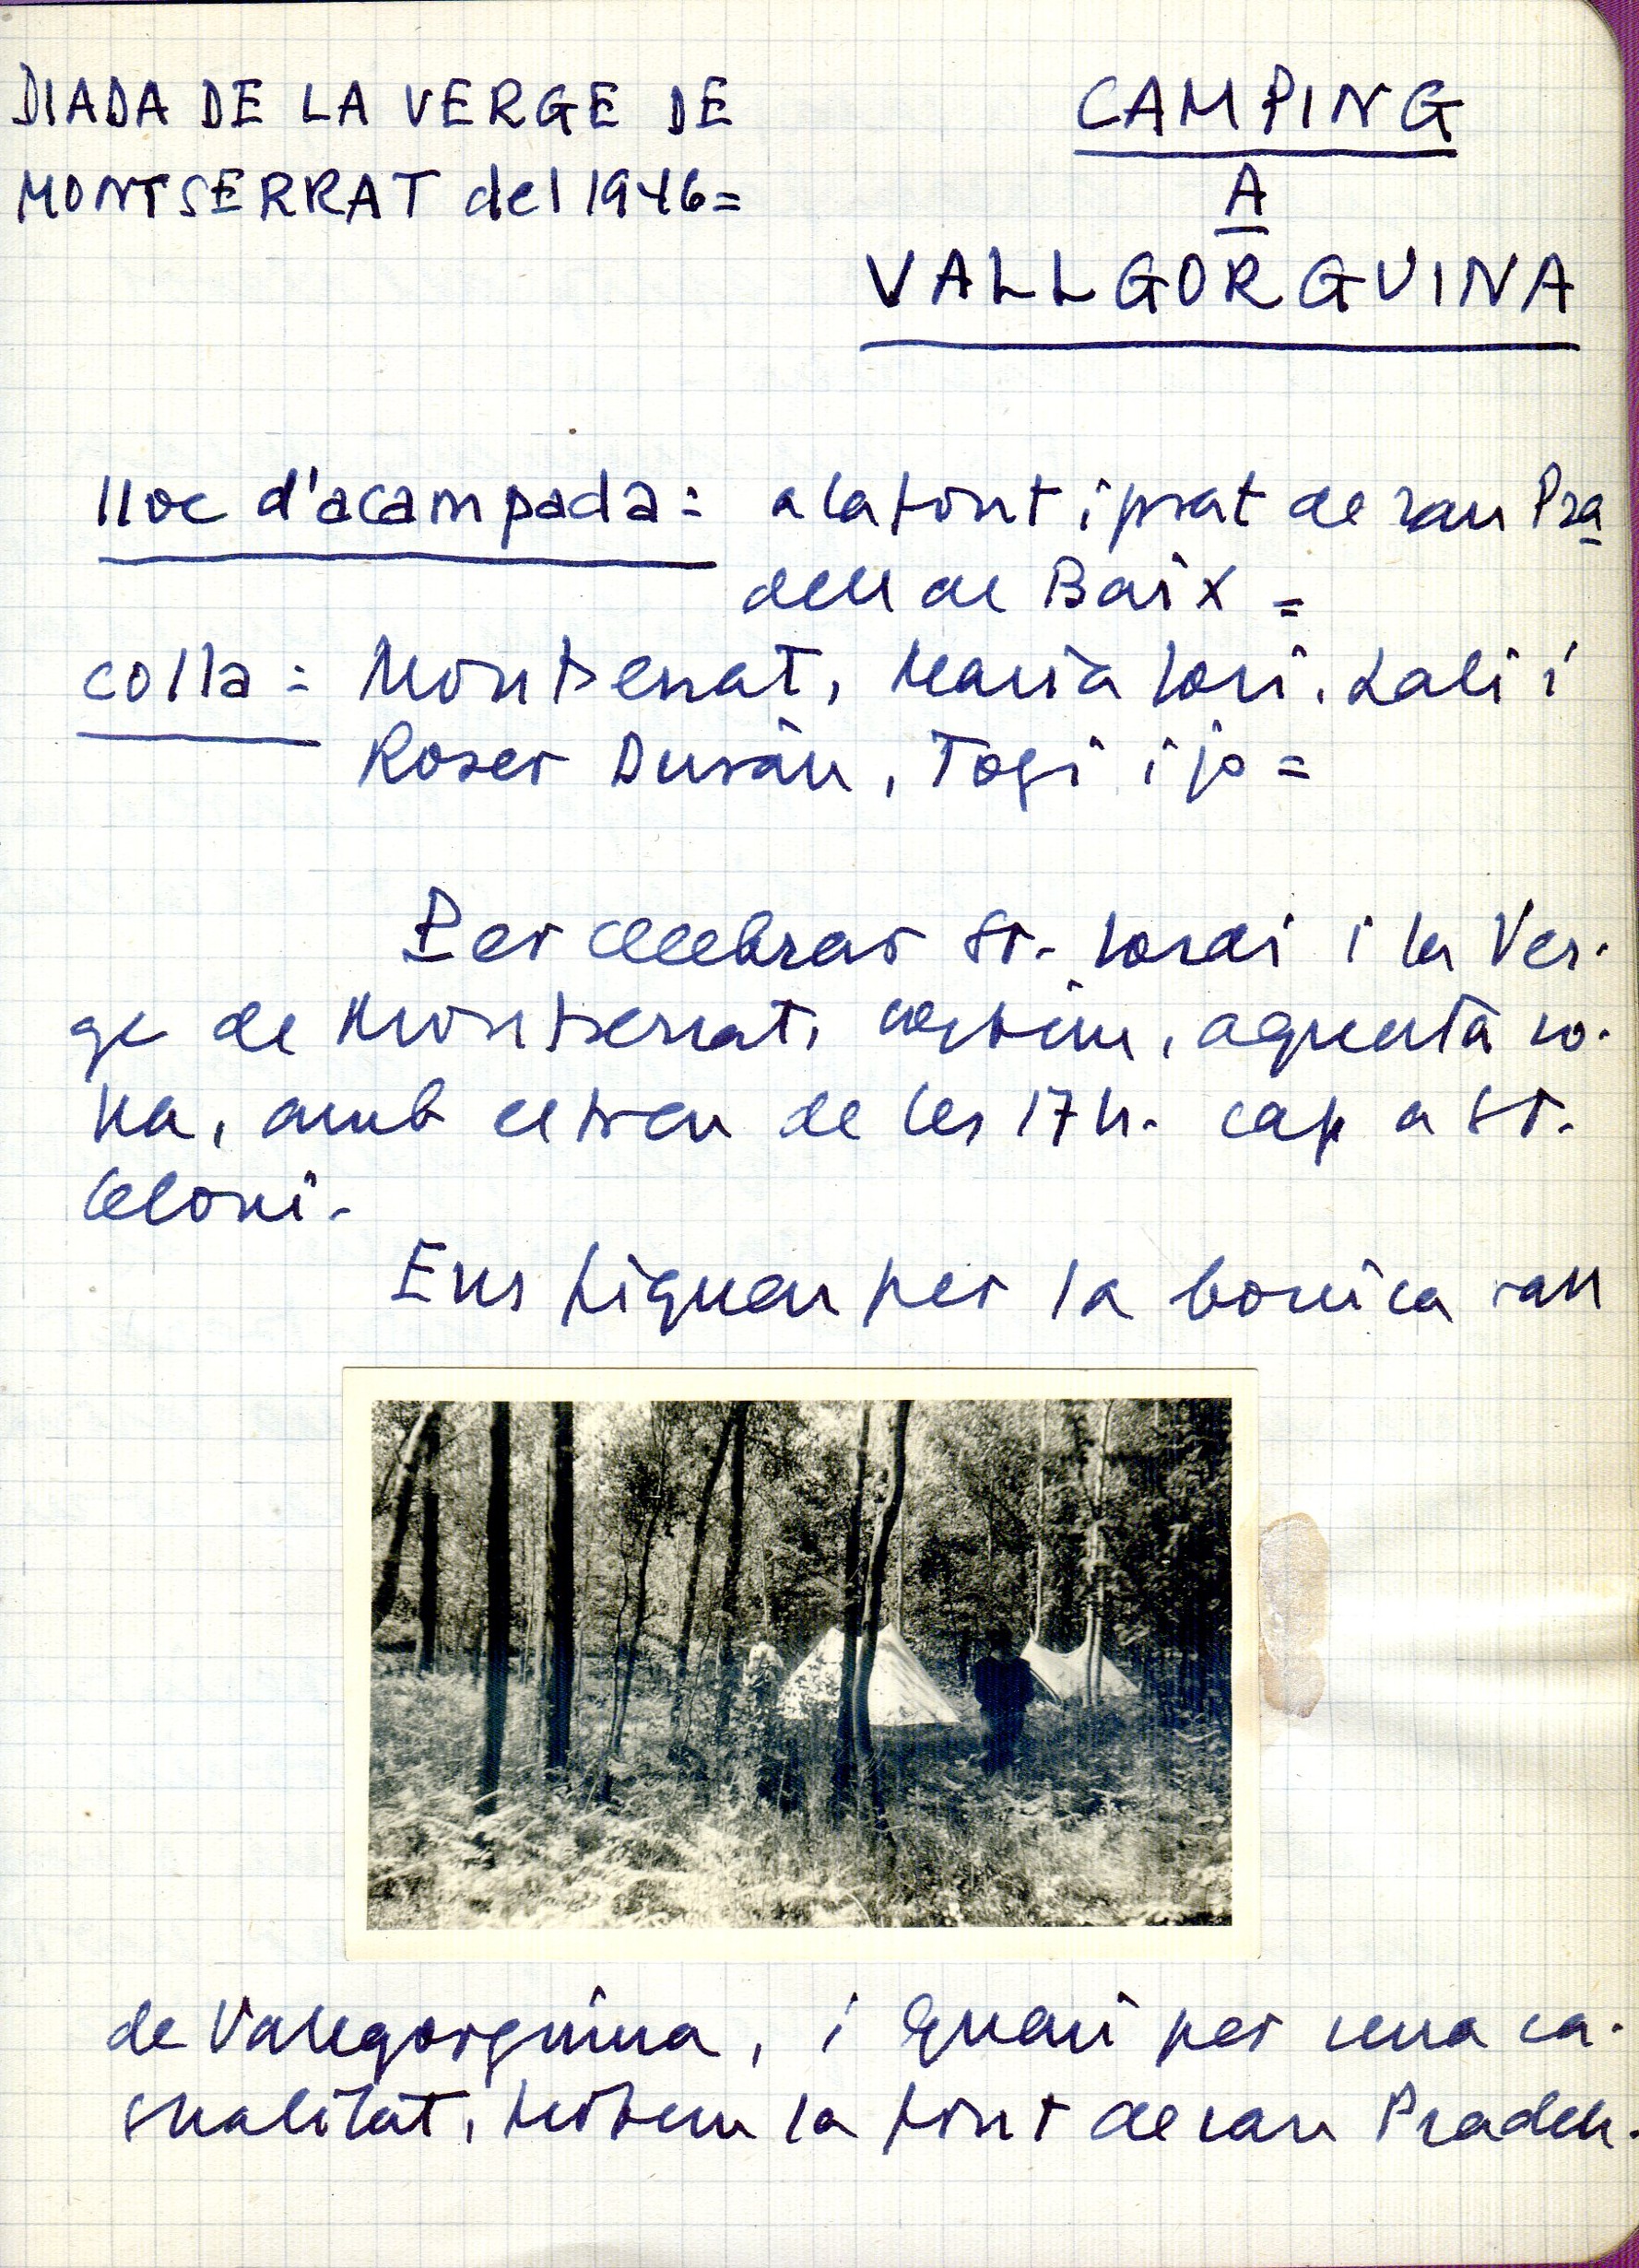 DIADA DE LA VERGE DE
MONTSERRAT del 1946=
CAMPING
A
VALLGORGUINA
lloc d'acampada= a la font i prat de can Pra
dell de Baix =
colla = Montserrat, Maria Lori, Lali i
Roser Duràn, Togi i jo =
Per celebrar St. Jordi i la Ver-
ge de Montserrat, sortim, aquesta co-
lla, amb el tren de les 17 h. cap a St.
Celoni.
Ens fiquem per la bonica vall
de Vallgorguina, i quasi per una ca-
sualitat, trobem la font de can Pradell.